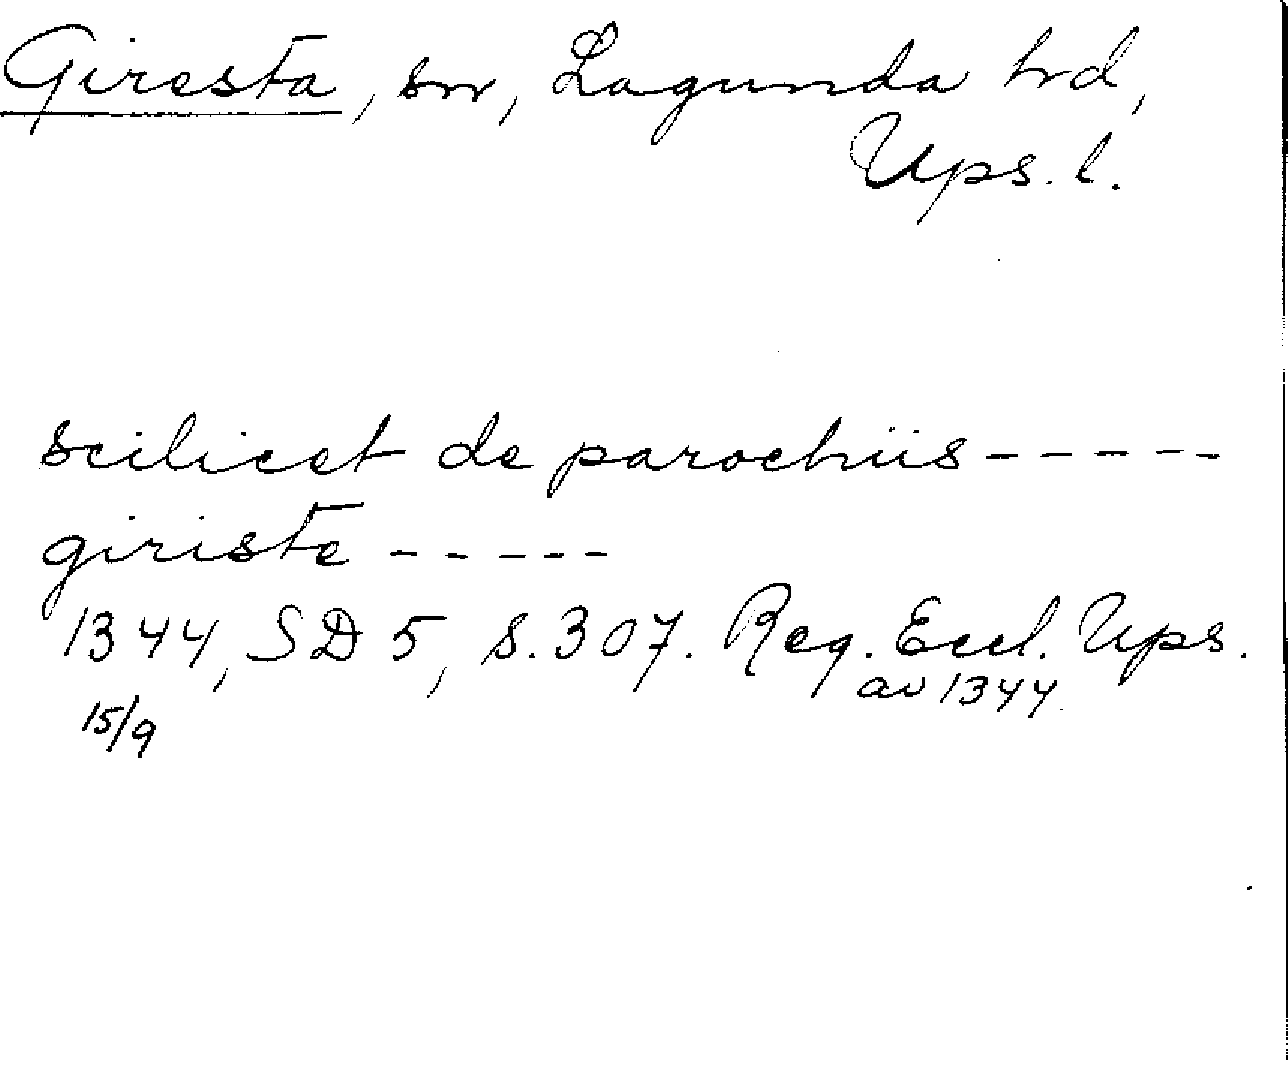 Giresta, sn, Lagunda hd,
Ups. l.
scilicet de parochiis-----
giriste -----
1344, SD 5, s. 307. Reg. Eccl. Ups.
av 1344.
15/9